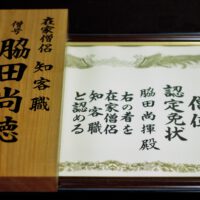 在家僧侶
知客職
僧号
脇田尚徳
僧位
認定免状
脇田尚揮殿
右の者を
在家僧侶
知客職
と認める